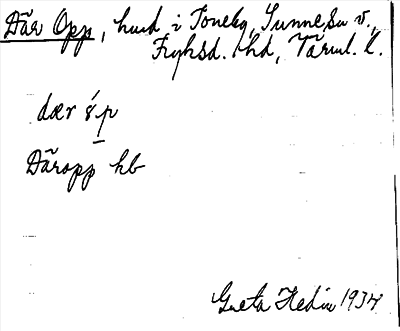 Där Opp, hud i Toneby, Sunne sn v.,
Fryksd. hd, Värml. l.
dær óp
Däropp hb
Greta Hedin 1934